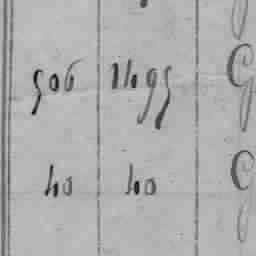 506 1495 G
40 40 G